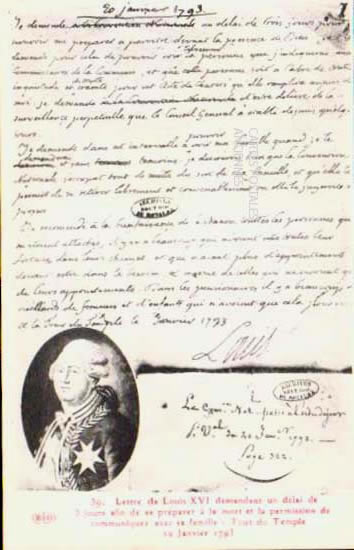 20 janvier 1793
Je demande un délai de trois jours pour
pouvoir me préparer à paroître devant la présence de Dieu. Je
demande pour cela de pouvoir voir la personne que j'indiquerai aux
Commissaires de la Commune, et que cette personne soit à l'abri de toute
inquiétude et crainte pour cet acte de charité qu'elle remplira auprès de
moi. je demande d'être délivré de la
surveillance perpétuelle que le Conseil Général a établie depuis quelques
jours.
Je demande dans cet intervalle à pouvoir voir ma famille quand je le
demanderai et sans témoins. je désirerois bien que la Convention
Nationale s'occupât tout de suite du sort de ma famille et qu'elle lui
permit de se retirer librement et convenablement où elle le jugeroit à
propos
Je recommande à la bienfaisance de la Nation toutes les personnes qui
m'étoient attachées. il y en a beaucoup qui avoient mis toutes leur
fortune dans leurs charges et qui n'ayant plus d'appointements
doivent être dans le besoin et même de celles qui ne vivoient que
de leurs appointements. Dans les pensionnaires il y a beaucoup de
vieillards de femmes et d'enfants qui n'avoient que cela pour vivre
à la Tour du Temple le janvier 1793
Louis
39. Lettre de Louis XVI demandant un délai de
3 jours afin de se préparer à la mort et la permission de
communiquer avec sa famille - Tour du Temple
20 Janvier 1793